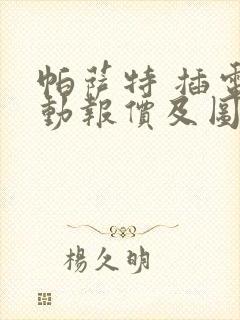 帕萨特 插電
動報價及圖
楊久明